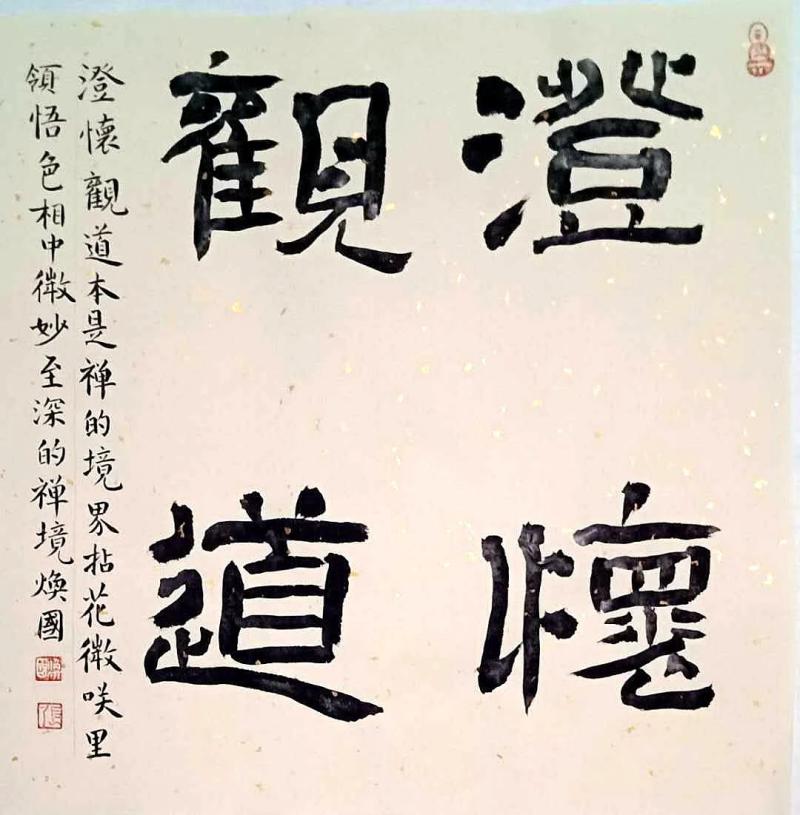 澄懷
觀道
澄懷觀道本是禅的境界拈花微咲里
領悟色相中微妙至深的禅境煥國